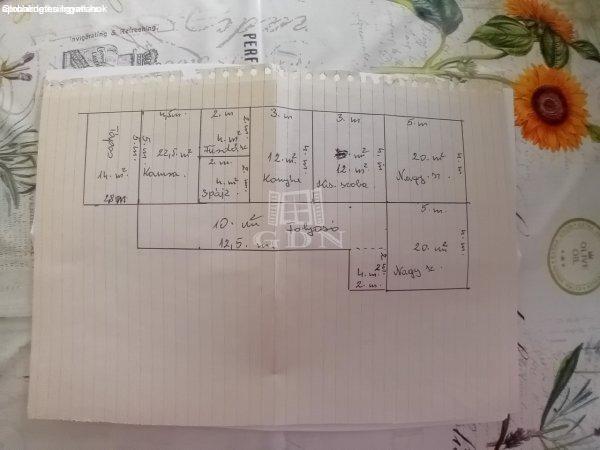 Invigorating & Refreshing.
PERF
4,5 m.
2. m
3. m
3. m
5. m
5. m
5. m
2. m
4. m²
Fürdősz
22,5. m²
Kamra
14. m²
28 m
2. m
4. m²
Spájz
12. m²
4. m
Konyha
m²
12. m²
4. m
Kis. szoba
20. m²
4. m
Nagy sz.
10. m²
12,5. m
Folyosó
GDN
5. m
20. m²
Nagy sz
4. m
2. m
OLIVE
OIL